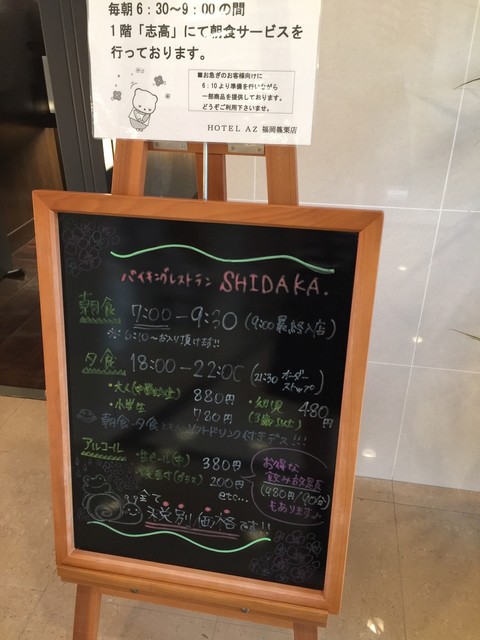 毎朝6:30～9:00の間
1階「志高」にて朝食サービスを
行っております。
■お急ぎのお客様向けに
6:10より準備を行いながら
一部商品を提供しております。
どうぞご利用下さいませ。
HOTEL AZ 福岡篠栗店
バイキングレストラン SHIDAKA.
朝食 7:00－9:30 (9:00最終入店)
※6:10～お入り頂けます!!
夕食 18:00－22:00 (21:30 オーダーストップ)
・大人(中学生以上) 880円
・小学生 780円
・幼児(3歳以上) 480円
朝食・夕食ともにソフトドリンク付きデス!!!
アルコール
・生ビール(中) 380円
(グラス) 200円
etc...
お得な
飲み放題
(980円/90分)
もあります♪
全て
特別価格です!!